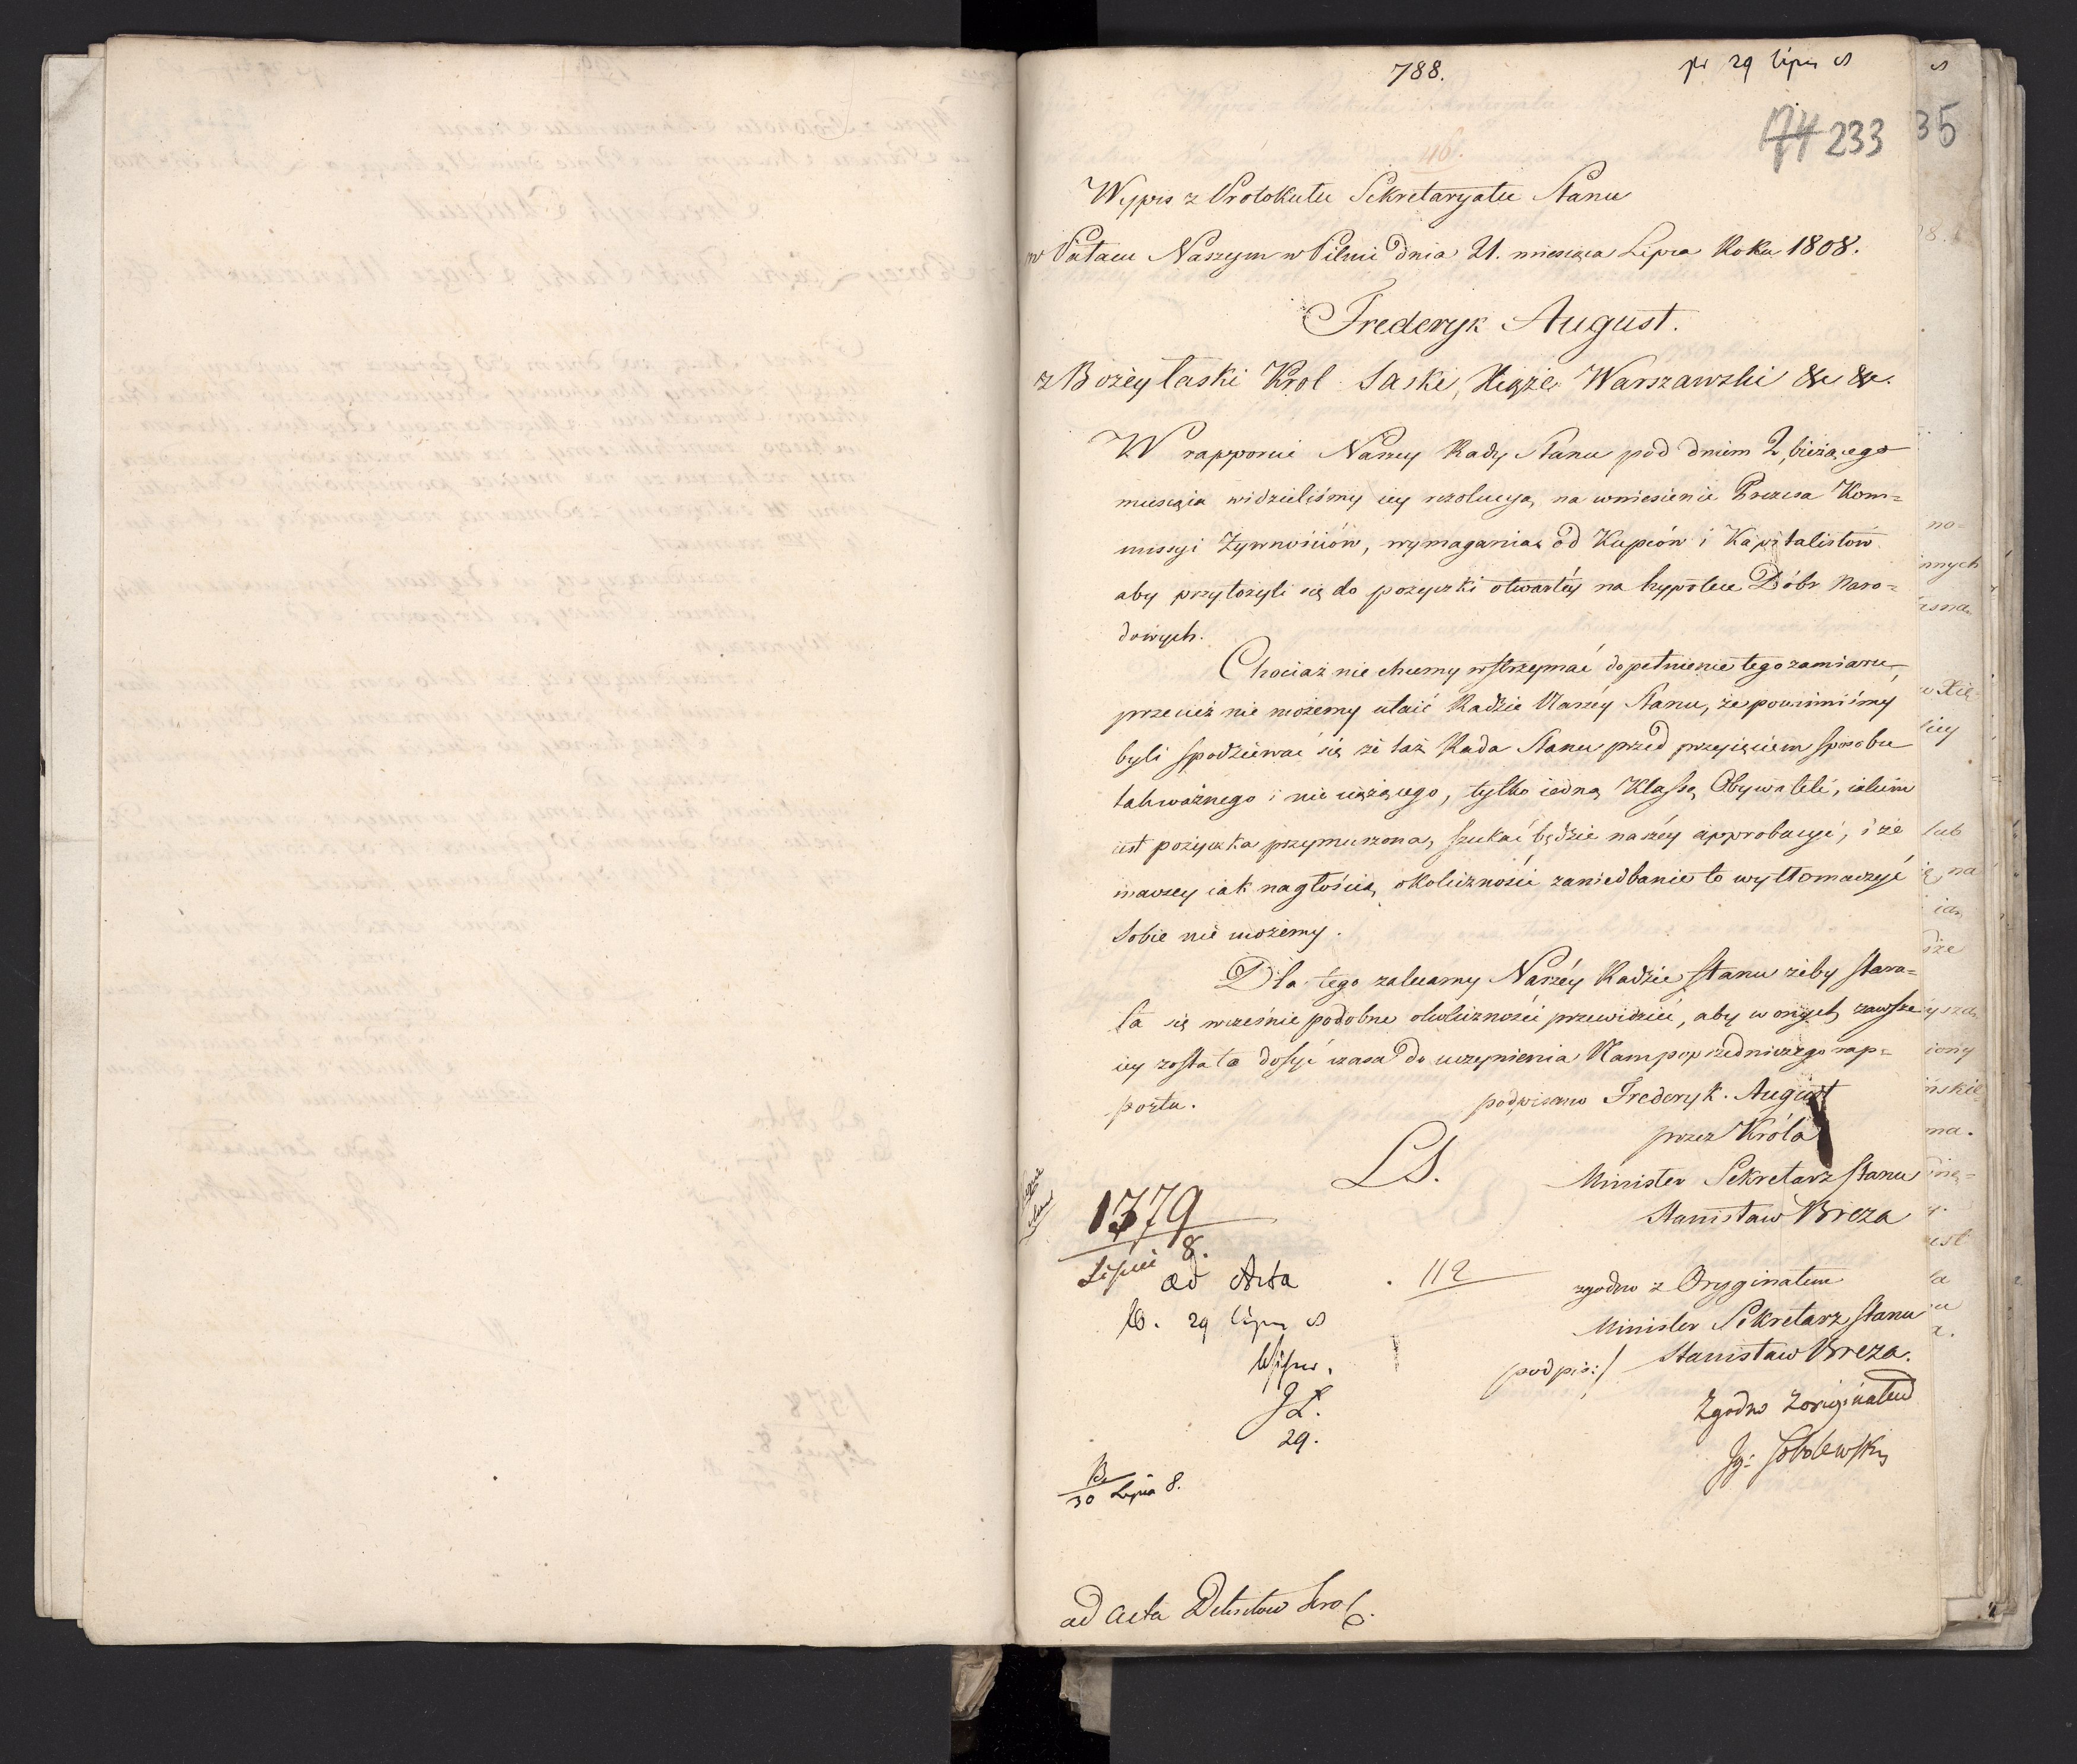 788.
pr 29 lipca
174 233
35
Wypis z Protokułu Sekretaryatu Stanu
w Pałacu Naszym w Pilnic dnia 21. miesiąca Lipca Roku 1808.
Frederyk August.
z Bożey łaski Krol Saski, Xiąże Warszawski &c &c.
W rapporcie Naszey Rady Stanu pod dniem 2, bieżącego
miesiąca widzieliśmy iey rezolucyą, na wniesienie Prezesa Kom=
missyi Żywnościów, wymagania od Kupców i Kapitalistów
aby przyłożyli się do pożyczki otwartéy na hypotece Dóbr Naro=
dowych.
Chociaż nie chcemy wstrzymać dopełnienie tego zamiaru,
przecież nie możemy utaić Radzie Naszéy Stanu, że powinniśmy
byli spodziewać się że taż Rada Stanu przed przyięciem sposobu
tak ważnego i nie ciążącego, tylko iedną Klassę Obywateli, iakim
iest pożyczka przymuszona, szukać będzie naszéy approbacyi, i że
inaczey iak nagłością okoliczności zaniedbanie to wytłomaczyć
sobie nie możemy.
Dla tego zalecamy Naszéy Radzie Stanu żeby stara=
ła się wcześnie podobne okoliczności przewidzieć, aby w onych zawsze
iey została dosyć czasu do uczynienia Nam poprzedniczego rap=
portu.
podpisano Frederyk August
przez Króla
LS.
Minister Sekretarz Stanu
Stanisław Breza
1379
Lipca 8.
ad Acta
112
zgodno z Oryginałem
29 lipca
Minister Sekretarz Stanu
podpis:/ Stanisław Breza.
Zgodno z originałem
29.
Sobolewski
30 Lipca 8.
ad acta Dekretow Krol.